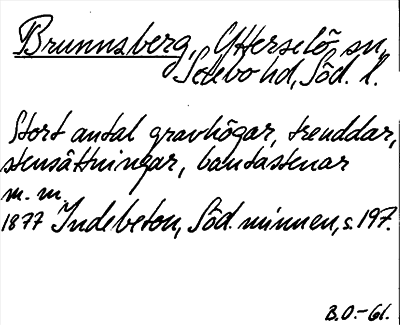 Brunnsberg, Ytterselö sn,
Selebo hd, Söd. l.
Stort antal gravhögar, treuddar,
stensättningar, bautastenar
m. m.
1877 Indebetou, Söd. minnen, s. 197.
B.O.-61.